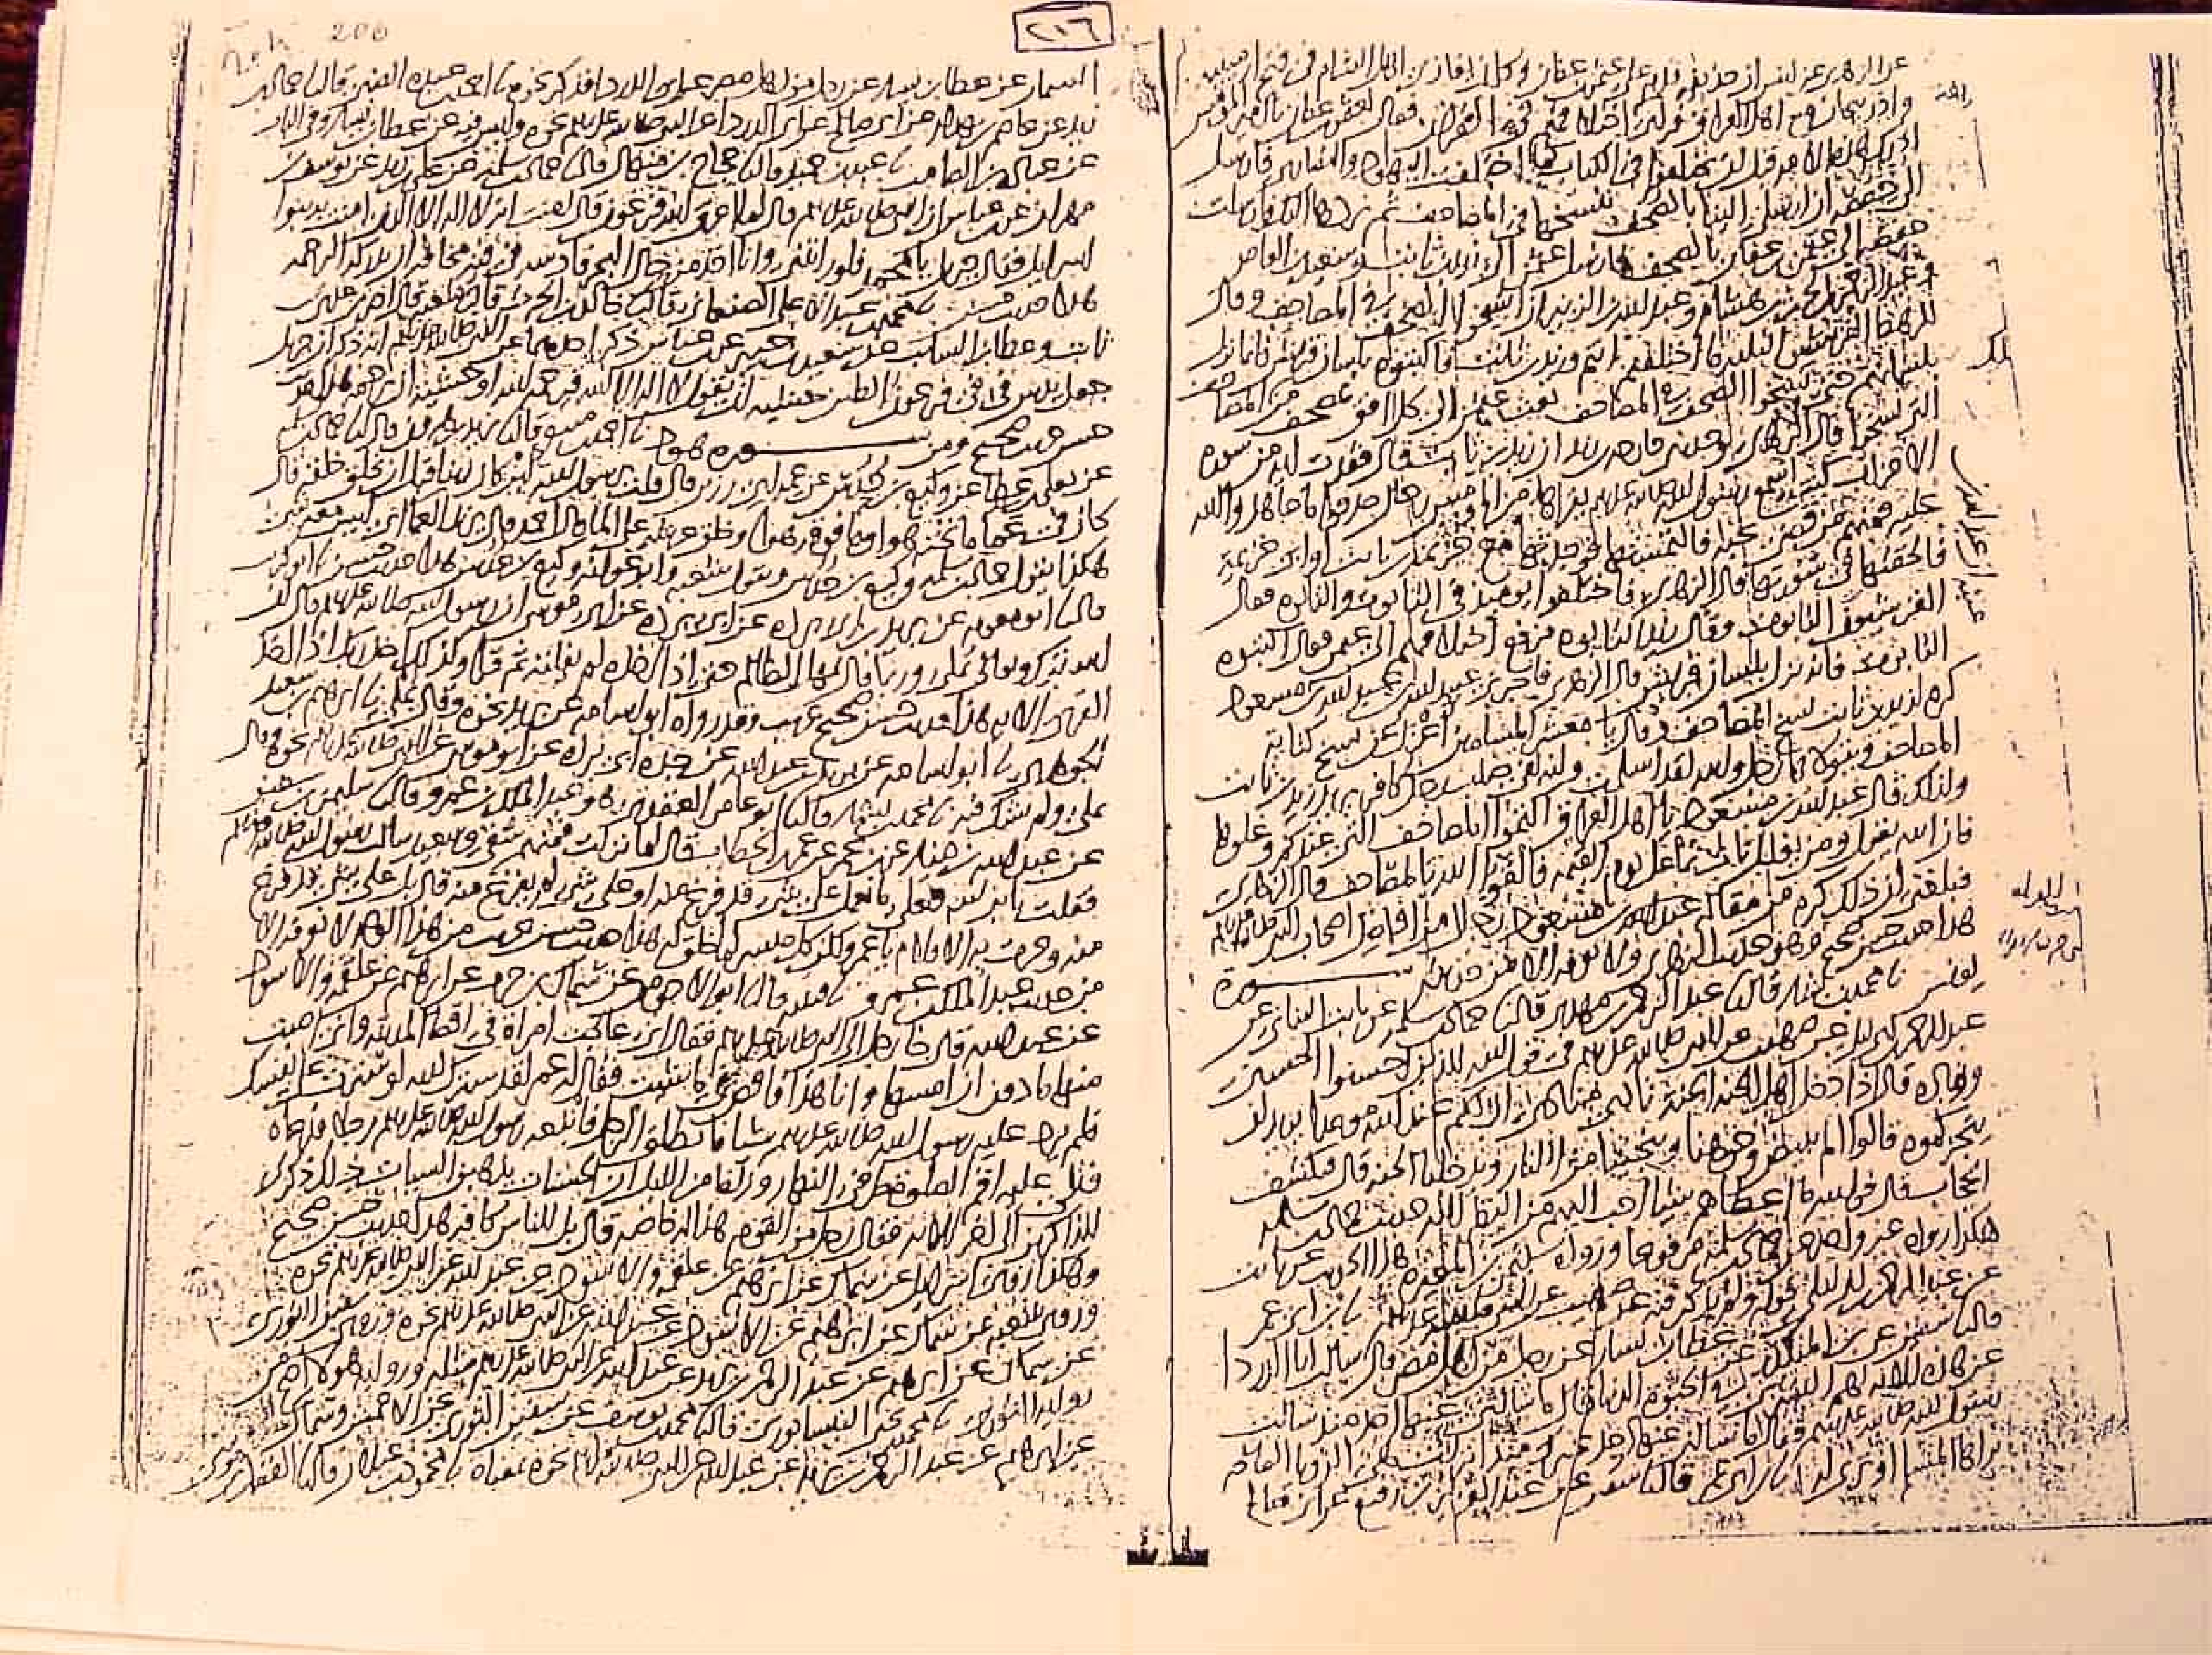 ٢١٦
206
عن الزهري عن انس ان حذيفة قدم على عثمن بن عفان وكان يغازي اهل الشام في فتح ارمينية
واذربيجان مع اهل العراق فراى حذيفة اختلافهم في القران فقال لعثمن بن عفان يا امير المومنين
ادرك هذه الامة قبل ان يختلفوا في الكتاب كما اختلفت اليهود والنصارى فارسل
الى حفصة ان ارسلي الينا بالصحف ننسخها في المصاحف ثم نردها اليك فارسلت
حفصة الى عثمن بن عفان بالصحف فارسل عثمن الى زيد بن ثابت وسعيد بن العاص
وعبد الرحمن بن الحرث بن هشام وعبد الله بن الزبير ان انسخوا الصحف في المصاحف وقال
للرهط القرشيين الثلثة ما اختلفتم انتم وزيد بن ثابت فاكتبوه بلسان قريش فانما نزل
بلسانهم حتى نسخوا الصحف في المصاحف بعث عثمن الى كل افق بمصحف من تلك المصاحف
التي نسخوا قال الزهري وحدثني خارجة بن زيد ان زيد بن ثابت قال فقدت اية من سورة
الاحزاب كنت اسمع رسول الله صلى الله عليه وسلم يقراها من المومنين رجال صدقوا ما عاهدوا الله
عليه فمنهم من قضى نحبه فالتمستها فوجدتها مع خزيمة بن ثابت او ابي خزيمة
فالحقتها في سورتها قال الزهري فاختلفوا يوميذ في التابوت والتابوه فقال
القرشيون التابوت وقال زيد التابوه فرفع اختلافهم الى عثمن فقال اكتبوه
التابوت فانه نزل بلسان قريش قال الزهري فاخبرني عبيد الله بن عبد الله ان عبد الله بن مسعود
كره لزيد بن ثابت نسخ المصاحف وقال يا معشر المسلمين اعزل عن نسخ كتابة
المصاحف ويتولاها رجل والله لقد اسلمت وانه لفي صلب رجل كافر يريد زيد بن ثابت
ولذلك قال عبد الله بن مسعود يا اهل العراق اكتموا المصاحف التي عندكم وغلوها
فان الله يقول ومن يغلل يات بما غل يوم القيمة فالقوا الله بالمصاحف قال الزهري
فبلغني ان ذلك كره من مقالة ابن مسعود رجال من افاضل اصحاب النبي صلى الله عليه وسلم
هذا حديث حسن صحيح وهو حديث الزهري ولا نعرفه الا من حديثه ســورة
يونس نا محمد بن بشار قال نا عبد الرحمن بن مهدي قال نا حماد بن سلمة عن ثابت البناني عن
عبد الرحمن بن ابي ليلى عن صهيب عن النبي صلى الله عليه وسلم في قول الله للذين احسنوا الحسنى
وزيادة قال اذا دخل اهل الجنة الجنة نادى مناد ان لكم عند الله موعدا يريد ان
ينجزكموه قالوا الم يبيض وجوهنا وينجينا من النار ويدخلنا الجنة قال فيكشف
الحجاب قال فوالله ما اعطاهم شيا احب اليهم من النظر اليه حديث حماد بن سلمة
هكذا رواه غير واحد عن حماد بن سلمة مرفوعا وروى سليمن بن المغيرة هذا الحديث عن ثابت
عن عبد الرحمن بن ابي ليلى قوله ولم يذكر فيه عن صهيب عن النبي صلى الله عليه وسلم نا ابن ابي عمر
قال نا سفين عن ابن المنكدر عن عطا بن يسار عن رجل من اهل مصر قال سالت ابا الدردا
عن هذه الاية لهم البشرى في الحيوة الدنيا قال ما سالني عنها احد منذ سالت
رسول الله صلى الله عليه وسلم وقال ما سالني عنها احد غيرك منذ انزلت هي الرويا الصالحة
يراها المسلم او ترى له نا ابن ابي عمر قال نا سفين عن عبد العزيز بن رفيع عن ابي صالح
السمان عن عطا بن يسار عن رجل من اهل مصر عن ابي الدردا فذكر نحوه نا احمد بن عبدة الضبي قال نا حماد بن
زيد عن عاصم بن بهدلة عن ابي صالح عن ابي الدردا عن النبي صلى الله عليه وسلم نحوه وليس فيه عن عطا بن يسار وفي الباب
عن عبادة بن الصامت نا عبد بن حميد قال نا حجاج بن منهال قال نا حماد بن سلمة عن علي بن زيد عن يوسف بن
مهران عن ابن عباس ان النبي صلى الله عليه وسلم قال لما اغرق الله فرعون قال امنت انه لا اله الا الذي امنت به بنوا
اسرايل فقال جبريل يا محمد فلو رايتني وانا اخذ من حال البحر فادسه في فيه مخافة ان تدركه الرحمة
هذا حديث حسن نا محمد بن عبد الاعلى الصنعاني قال نا خالد بن الحرث قال نا شعبة قال اخبرني عدي بن
ثابت وعطا بن السايب عن سعيد بن جبير عن ابن عباس ذكر احدهما عن النبي صلى الله عليه وسلم انه ذكر ان جبريل
جعل يدس في في فرعون الطين خشية ان يقول لا اله الا الله فيرحمه الله او خشية ان يرحمه هذا حديث
حسن غريب صحيح ومن ســورة هود نا احمد بن منيع قال نا يزيد بن هرون قال نا حماد بن سلمة
عن يعلى بن عطا عن وكيع بن حدس عن عمه ابي رزين قال قلت يرسول الله اين كان ربنا قبل ان يخلق خلقه قال
كان في عما ما تحته هوا وما فوقه هوا وخلق عرشه على الما قال احمد قال يزيد العما اي ليس معه شي
هكذا يقول حماد بن سلمة وكيع بن حدس ويقول شعبة وابو عوانة وكيع بن عدس هذا حديث حسن نا ابو كريب
قال نا ابو معوية عن بريد بن ابي بردة عن ابي بردة عن ابي موسى ان رسول الله صلى الله عليه وسلم قال ان
الله تبرك وتعالى يملي وربما قال يمهل الظالم حتى اذا اخذه لم يفلته ثم قرا وكذلك اخذ ربك اذا اخذ
القرى الاية هذا حديث حسن صحيح غريب وقد رواه ابو اسامة عن بريد نحوه وقال يملي نا ابرهيم بن سعيد
الجوهري نا ابو اسامة عن بريد بن عبد الله عن جده ابي بردة عن ابي موسى عن النبي صلى الله عليه وسلم نحوه وقال
يملي ولم يشك فيه نا محمد بن بشار قال نا ابو عامر العقدي هو عبد الملك بن عمرو قال نا سليمن بن سفين
عن عبد الله بن دينار عن ابن عمر عن عمر بن الخطاب قال لما نزلت فمنهم شقي وسعيد سالت رسول الله صلى الله عليه وسلم
فقلت يا نبي الله فعلى ما نعمل على شي قد فرغ منه او على شي لم يفرغ منه قال بل على شي قد فرغ
منه وجرت به الاقلام يا عمر ولكن كل ميسر لما خلق له هذا حديث حسن غريب من هذا الوجه لا نعرفه الا
من حديث عبد الملك بن عمرو نا قتيبة قال نا ابو الاحوص عن سماك بن حرب عن ابرهيم عن علقمة والاسود
عن عبد الله قال جا رجل الى النبي صلى الله عليه وسلم فقال اني عالجت امراة في اقصى المدينة واني اصبت
منها ما دون ان امسها وانا هذا فاقض في ما شيت فقال له عمر لقد سترك الله لو سترت على نفسك
فلم يرد عليه رسول الله صلى الله عليه وسلم شيا فانطلق الرجل فاتبعه رسول الله صلى الله عليه وسلم رجلا فدعاه
فتلا عليه اقم الصلوة طرفي النهار وزلفا من الليل ان الحسنات يذهبن السيات ذلك ذكرى
للذاكرين الى اخر الاية فقال رجل من القوم هذا له خاصة قال بل للناس كافة هذا حديث حسن صحيح
وهكذا روى اسرايل عن سماك عن ابرهيم عن علقمة والاسود عن عبد الله عن النبي صلى الله عليه وسلم نحوه
وروى شعبة عن سماك عن ابرهيم عن الاسود عن عبد الله عن النبي صلى الله عليه وسلم نحوه وروى سفين الثوري
عن سماك عن ابرهيم عن عبد الرحمن بن يزيد عن عبد الله عن النبي صلى الله عليه وسلم مثله ورواية هولا اصح من
رواية الثوري نا محمد بن يحيى النيسابوري قال نا محمد بن يوسف عن سفين الثوري عن الاعمش وسماك
عن ابرهيم عن عبد الرحمن بن يزيد عن عبد الله عن النبي صلى الله عليه وسلم نحوه بمعناه نا محمود بن غيلان قال نا الفضل بن موسى